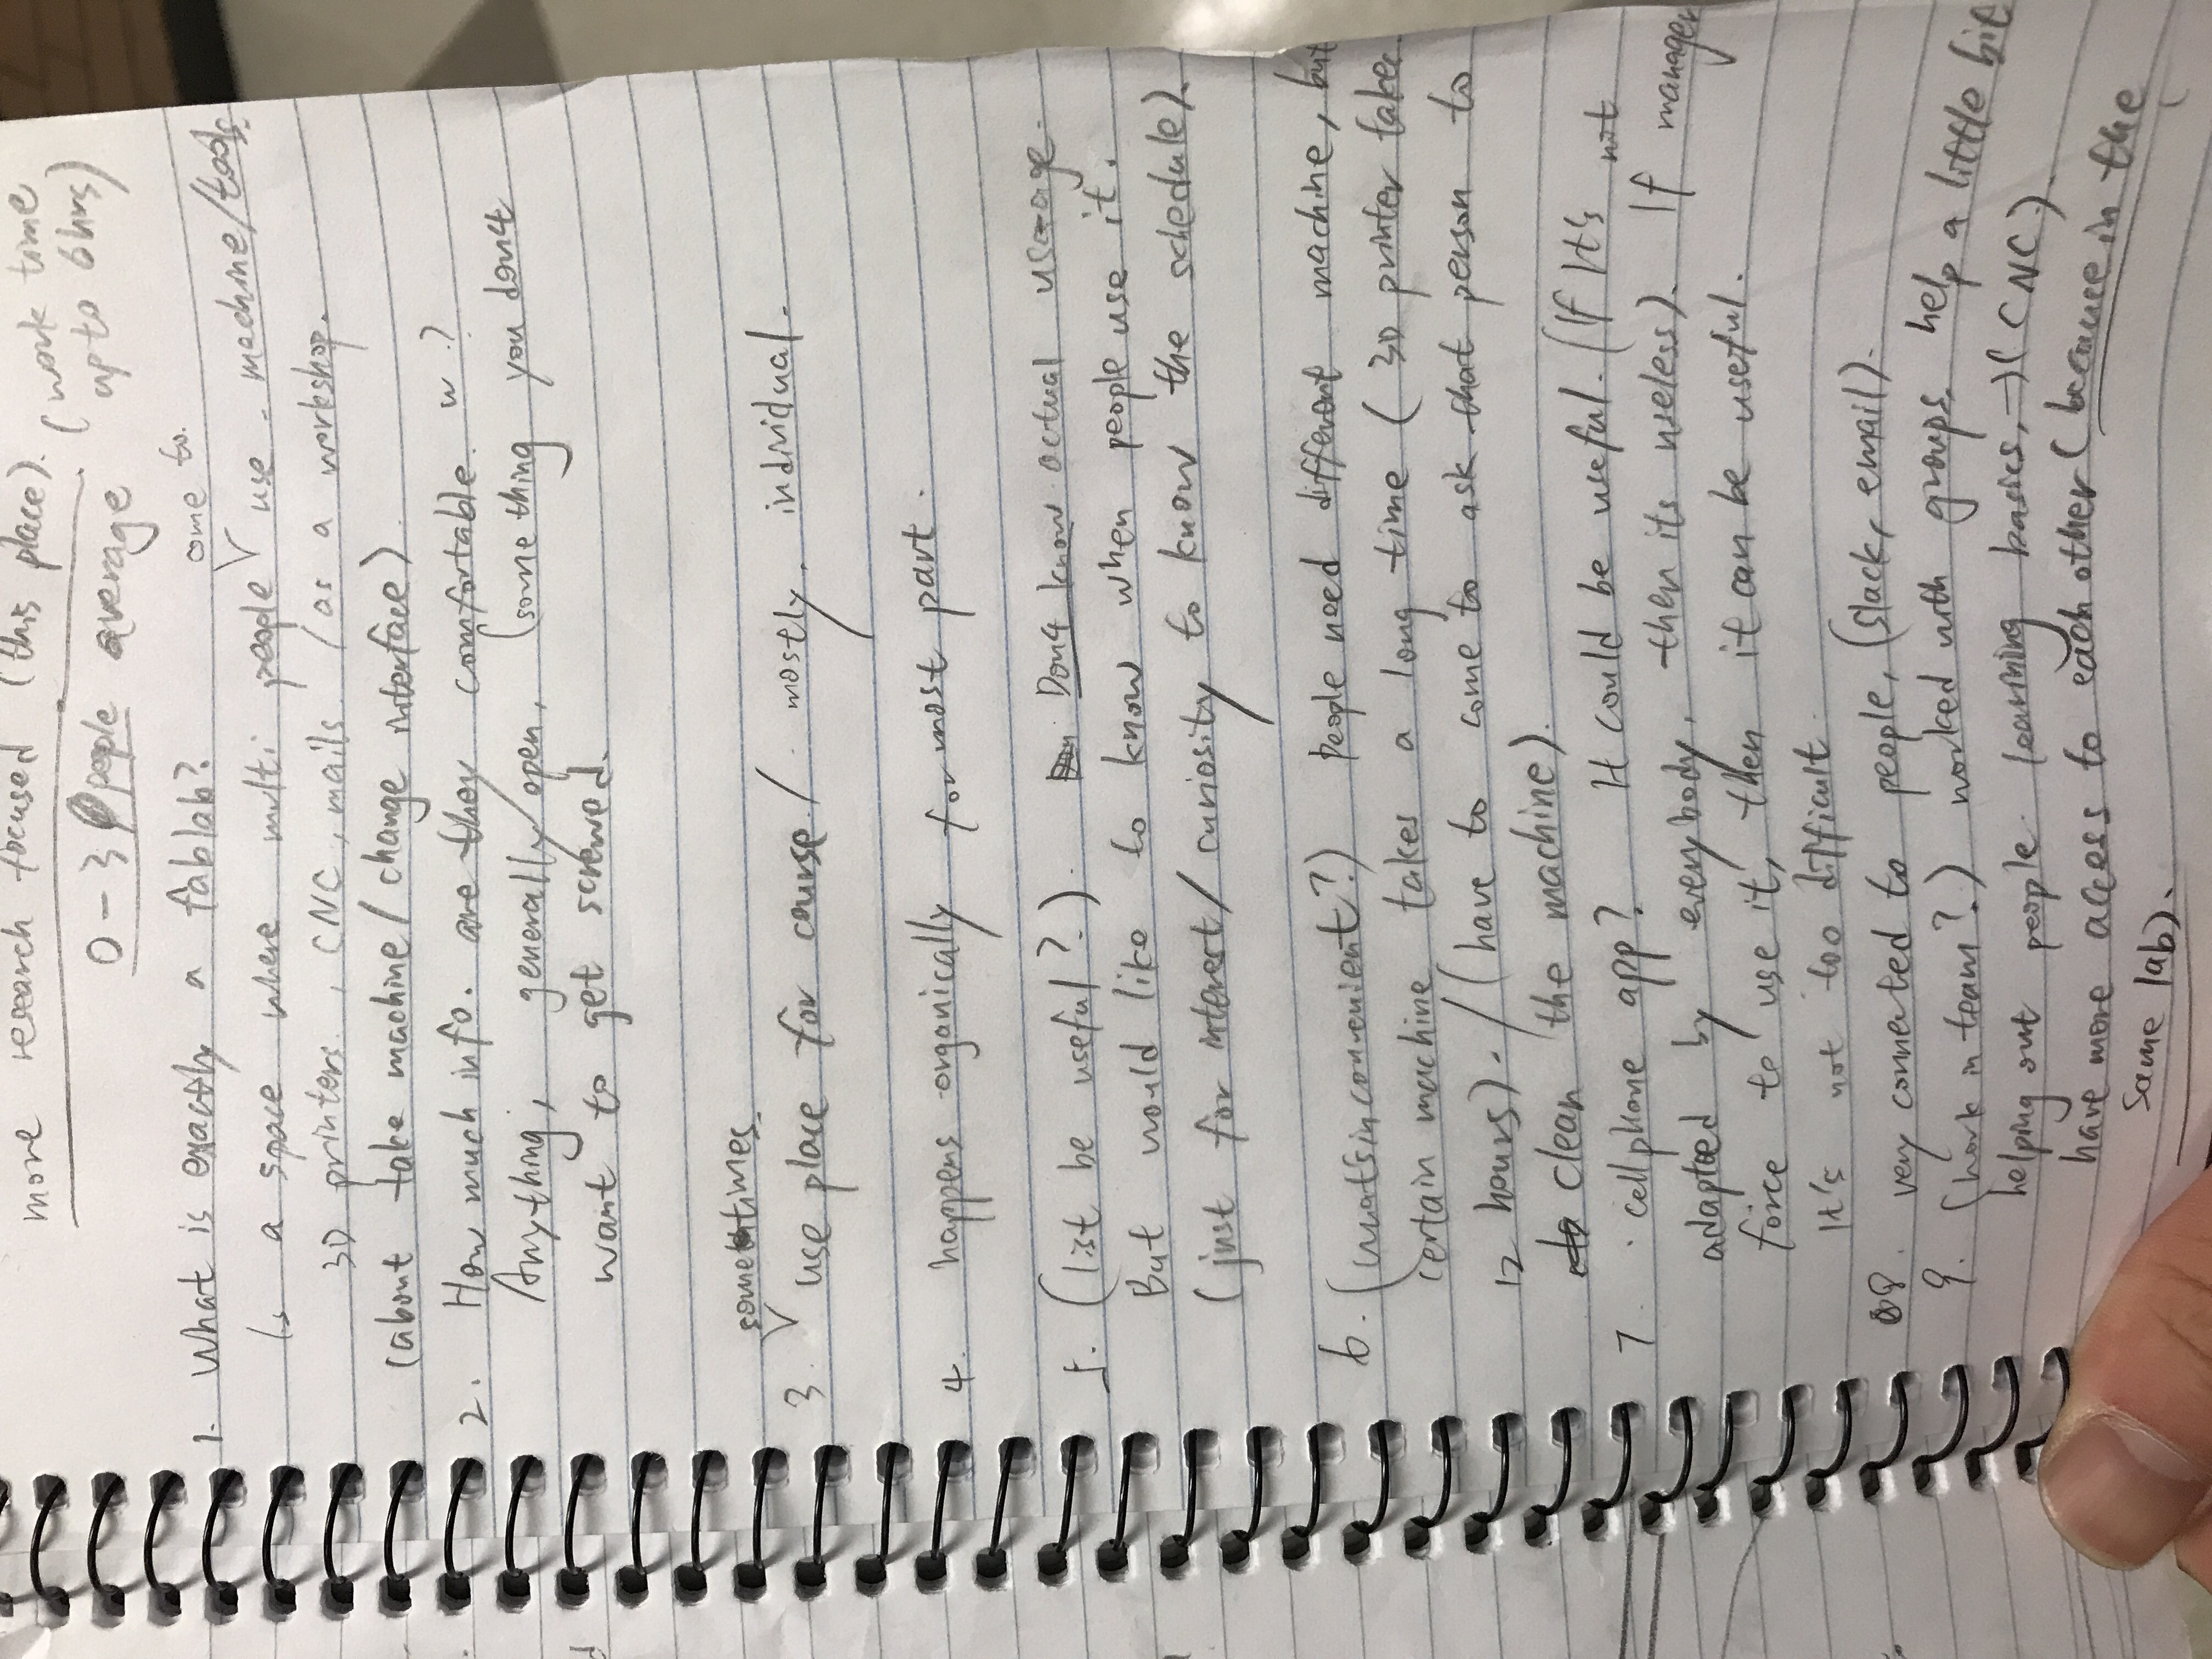 more research focused (this place). (work time
0 - 3 people average up to 6 hrs)
1. What is exactly a fablab?
come to.
Is a space where multi people use - machine/tools.
3D printers. , CNC, mails. / as a workshop.
(about take machine / change interface).
2. How much info. are they comfortable. w.?
Anything, generally open, (something you don4
want to get screwed.
sometimes.
3. use place for course. / mostly, individual.
4. happens organically for most part.
5. (list be useful?.). Don4 know actual useage.
But would like to know when people use it.
(just for interest / curiosity to know the schedule).
6. (whats inconvenient?) People need different machine, but
certain machine takes a long time ( 3D printer takes
12 hours). / (have to come to ask that person to
clean the machine).
7. cellphone app? It could be useful. (If It's not
adapted by everybody, then its useless). If manager
force to use it, then it can be useful.
It's not too difficult.
8. very connected to people, (slack, email).
9. (work in team?) worked with groups, help a little bit
helping out people learining basics, → (CNC).
have more access to each other (because in the
same lab).